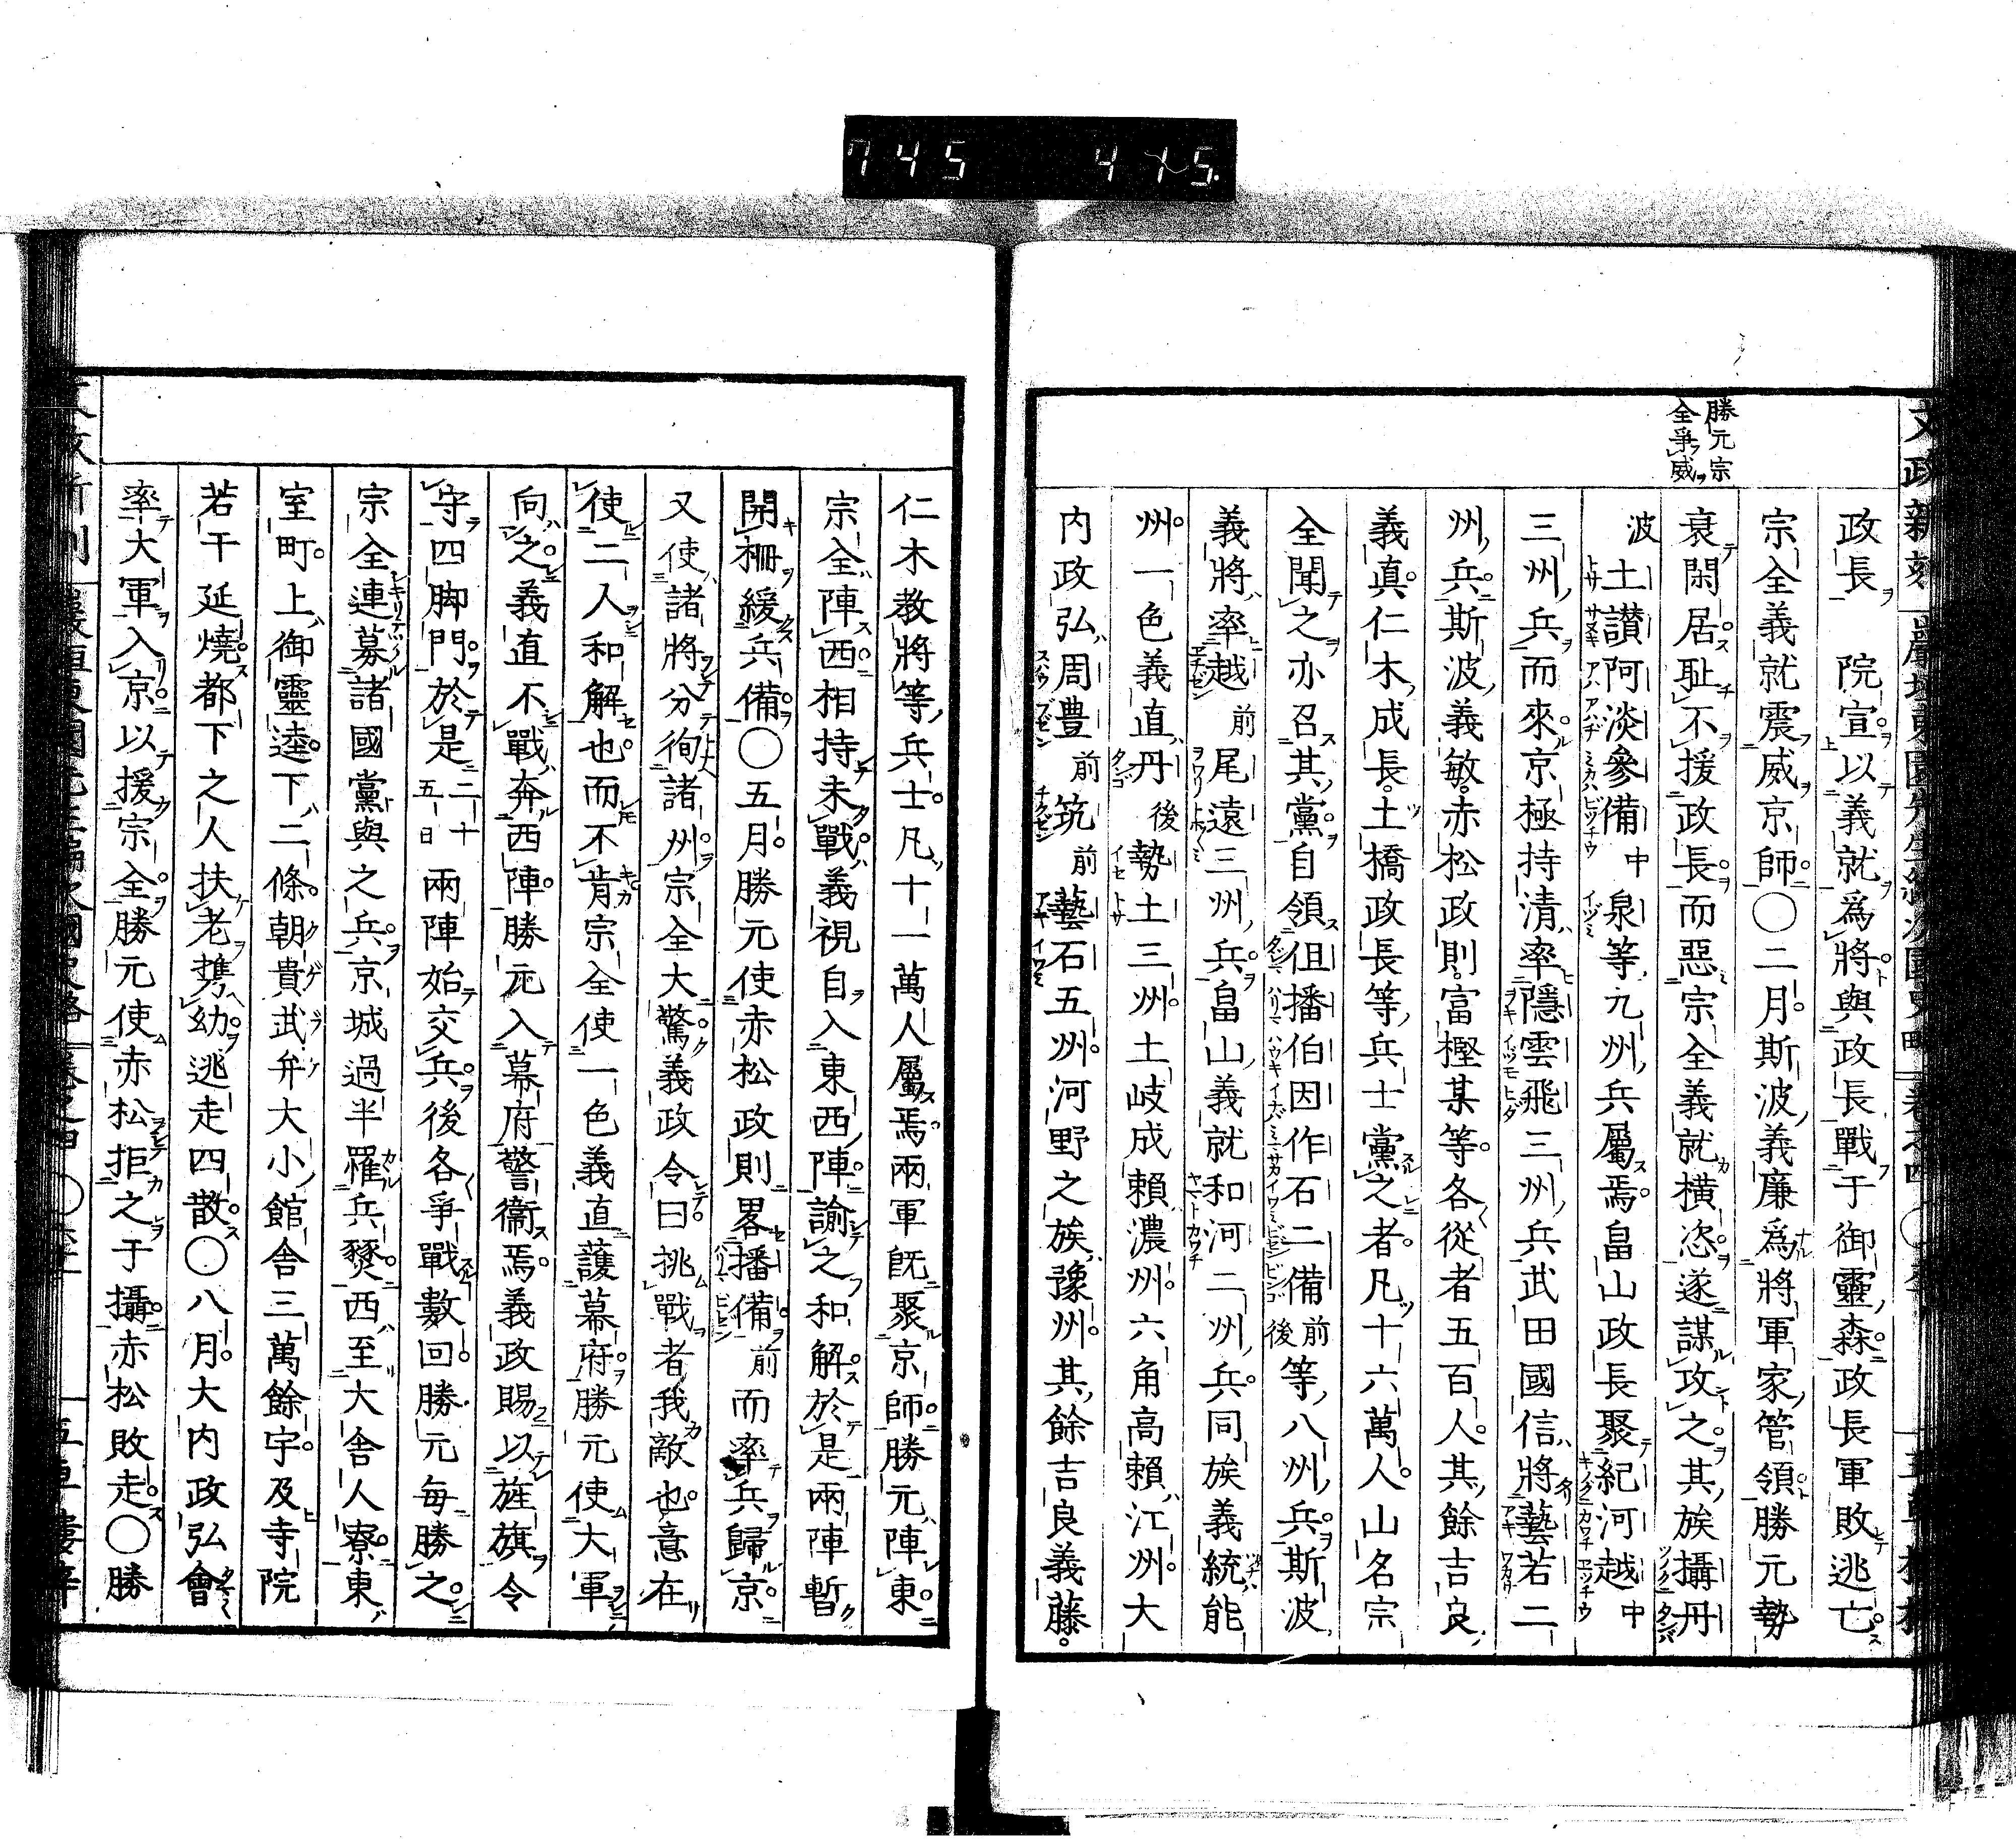 745 415.
勝元宗
全爭威
政長 院宣以義就爲將與政長戰于御靈森政長軍敗逃亡
宗全義就震威京師〇二月斯波義廉爲將軍家管領勝元勢
衰閑居耻不援政長而惡宗全義就橫恣遂謀攻之其族攝丹
波土讃阿淡參備中泉等九州兵屬焉畠山政長聚紀河越中
三州兵而來京極持清率隱雲飛三州兵武田國信將藝若二
州兵斯波義敏赤松政則富樫某等各從者五百人其餘吉良
義真仁木成長土橋政長等兵士黨之者凡十六萬人山名宗
全聞之亦召其黨自領但播伯因作石二備前後等八州兵斯波
義將率越前尾遠三州兵畠山義就和河二州兵同族義統能
州一色義直丹後勢土三州土岐成賴濃州六角高賴江州大
内政弘周豊前筑前藝石五州河野之族豫州其餘吉良義藤
仁木教將等兵士凡十一萬人屬焉兩軍既聚京師勝元陣東
宗全陣西相持未戰義視自入東西陣諭之和解於是兩陣暫
開柵緩兵備〇五月勝元使赤松政則畧播備前而率兵歸京
又使諸將分徇諸州宗全大驚義政令曰挑戰者我敵也意在
使二人和解也而不肯宗全使一色義直護幕府勝元使大軍
向之義直不戰奔西陣勝元入幕府警衞焉義政賜以旌旗令
守四脚門於是二十五日兩陣始交兵後各爭戰數回勝元每勝之
宗全連募諸國黨與之兵京城過半罹兵燹西至大舍人寮東
室町上御靈逵下二條朝貴武弁大小館舍三萬餘宇及寺院
若干延燒都下之人扶老携幼逃走四散〇八月大内政弘會
率大軍入京以援宗全勝元使赤松拒之于攝赤松敗走〇勝